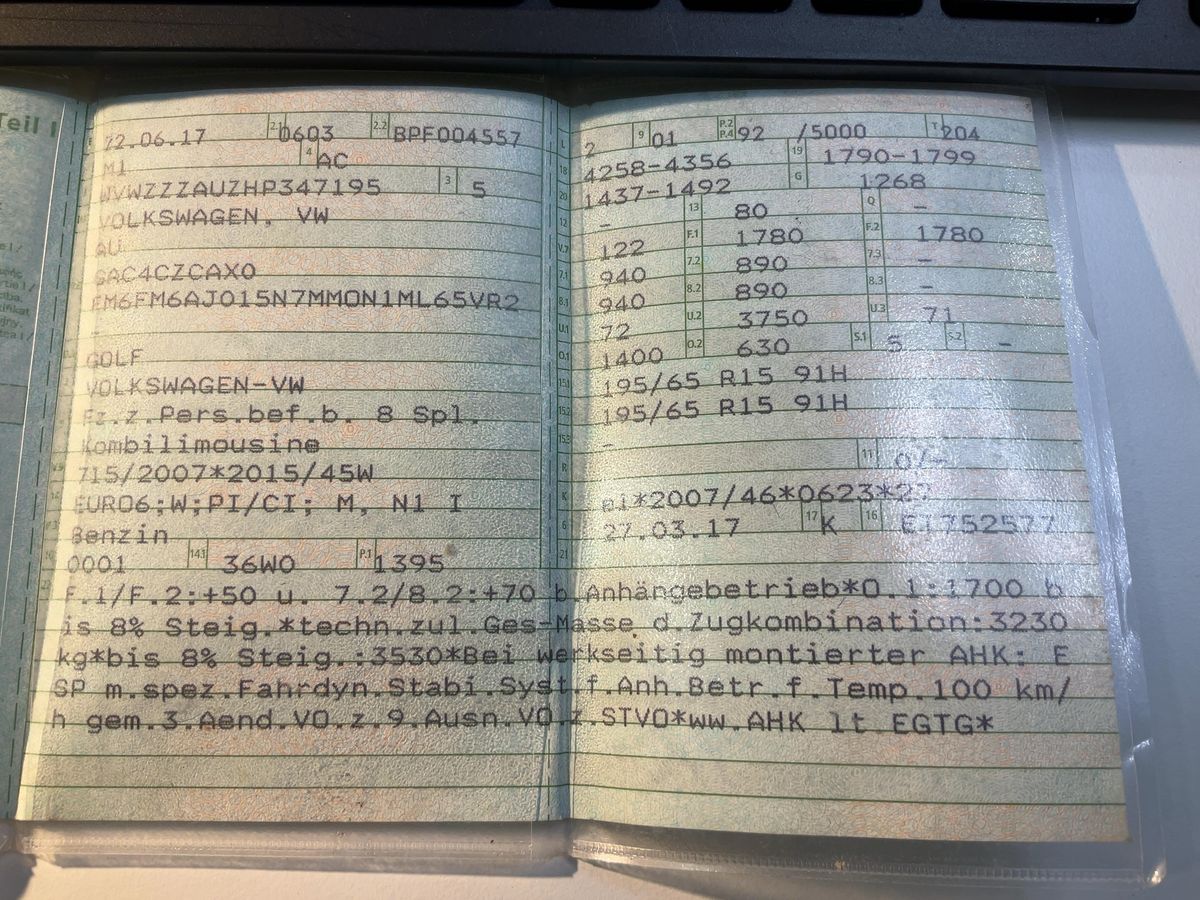 Teil I
22.06.17 2.1 0603 2.2 BPF004557
M1 4 AC
WVWZZZAUZHP347195 3 5
VOLKSWAGEN, VW
AU
SAC4CZCAX0
FM6FM6AJ015N7MMON1ML65VR2
GOLF
VOLKSWAGEN-VW
Fz.z.Pers.bef.b. 8 Spl.
Kombilimousine
715/2007*2015/45W
EURO6;W;PI/CI; M, N1 I
Benzin
0001 14.1 36W0 P.1 1395
L 2 9 01 P.2 P.4 92 /5000 T 204
18 4258-4356 19 1790-1799
20 1437-1492 G 1268
12 - 13 80 Q -
V.7 122 F.1 1780 F.2 1780
7.1 940 7.2 890 7.3 -
8.1 940 8.2 890 8.3 -
U.1 72 U.2 3750 U.3 71
O.1 1400 O.2 630 S.1 5 S.2 -
15.1 195/65 R15 91H
15.2 195/65 R15 91H
15.3 -
R 11 0/-
K e1*2007/46*0623*22
6 27.03.17 17 K 16 EI752577
21
F.1/F.2:+50 u. 7.2/8.2:+70 b.Anhängebetrieb*O.1:1700 b
is 8% Steig.*techn.zul.Ges-Masse d.Zugkombination:3230
kg*bis 8% Steig.:3530*Bei werkseitig montierter AHK: E
SP m.spez.Fahrdyn.Stabi.Syst.f.Anh.Betr.f.Temp.100 km/
h gem.3.Aend.VO.z.9.Ausn.VO.z.STVO*ww.AHK lt.EGTG*